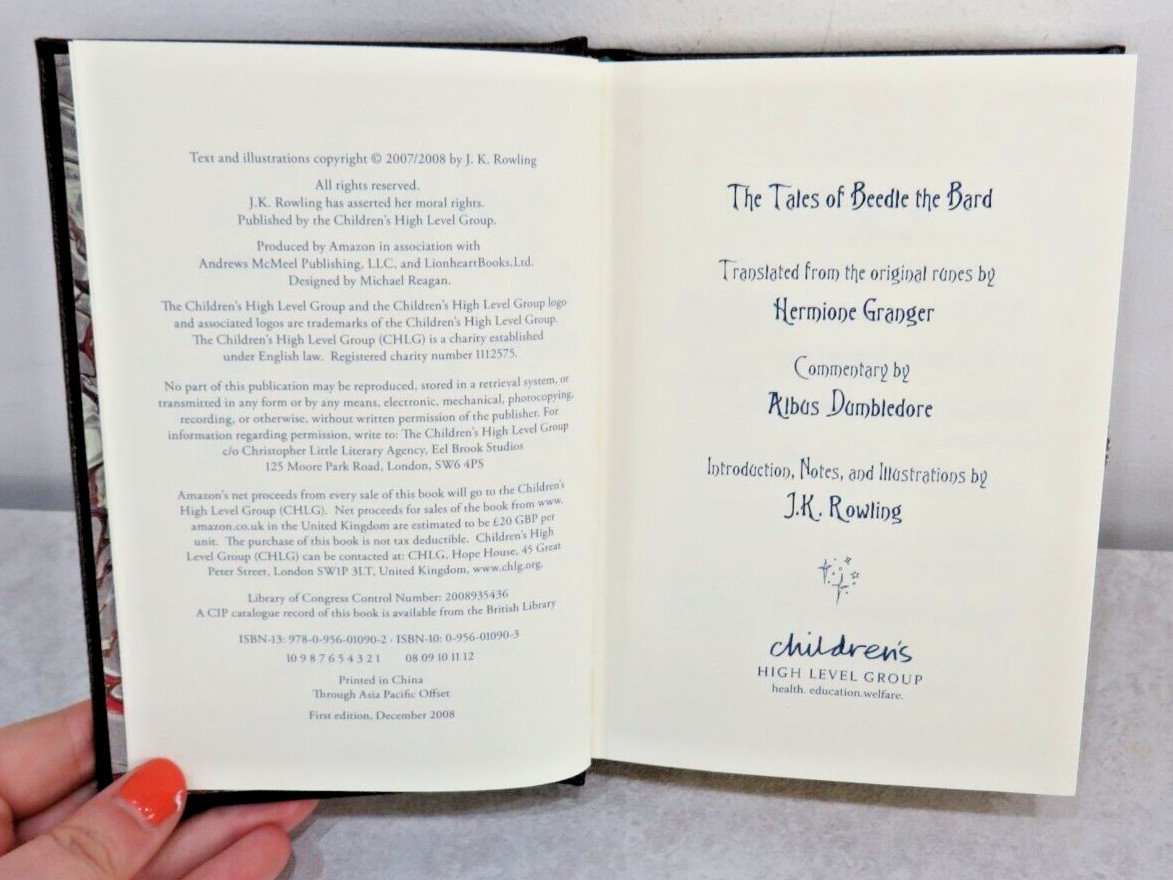 Text and illustrations copyright © 2007/2008 by J. K. Rowling
All rights reserved.
J.K. Rowling has asserted her moral rights.
Published by the Children's High Level Group.
Produced by Amazon in association with
Andrews McMeel Publishing, LLC, and LionheartBooks,Ltd.
Designed by Michael Reagan.
The Children's High Level Group and the Children's High Level Group logo
and associated logos are trademarks of the Children's High Level Group.
The Children's High Level Group (CHLG) is a charity established
under English law. Registered charity number 1112575.
No part of this publication may be reproduced, stored in a retrieval system, or
transmitted in any form or by any means, electronic, mechanical, photocopying,
recording, or otherwise, without written permission of the publisher. For
information regarding permission, write to: The Children's High Level Group
c/o Christopher Little Literary Agency, Eel Brook Studios
125 Moore Park Road, London, SW6 4PS
Amazon's net proceeds from every sale of this book will go to the Children's
High Level Group (CHLG). Net proceeds for sales of the book from www.
amazon.co.uk in the United Kingdom are estimated to be £20 GBP per
unit. The purchase of this book is not tax deductible. Children's High
Level Group (CHLG) can be contacted at: CHLG, Hope House, 45 Great
Peter Street, London SW1P 3LT, United Kingdom, www.chlg.org.
Library of Congress Control Number: 2008935436
A CIP catalogue record of this book is available from the British Library
ISBN-13: 978-0-956-01090-2 · ISBN-10: 0-956-01090-3
10 9 8 7 6 5 4 3 2 1 08 09 10 11 12
Printed in China
Through Asia Pacific Offset
First edition, December 2008
The Tales of Beedle the Bard
Translated from the original runes by
Hermione Granger
Commentary by
Albus Dumbledore
Introduction, Notes, and Illustrations by
J.K. Rowling
children's
HIGH LEVEL GROUP
health. education.welfare.